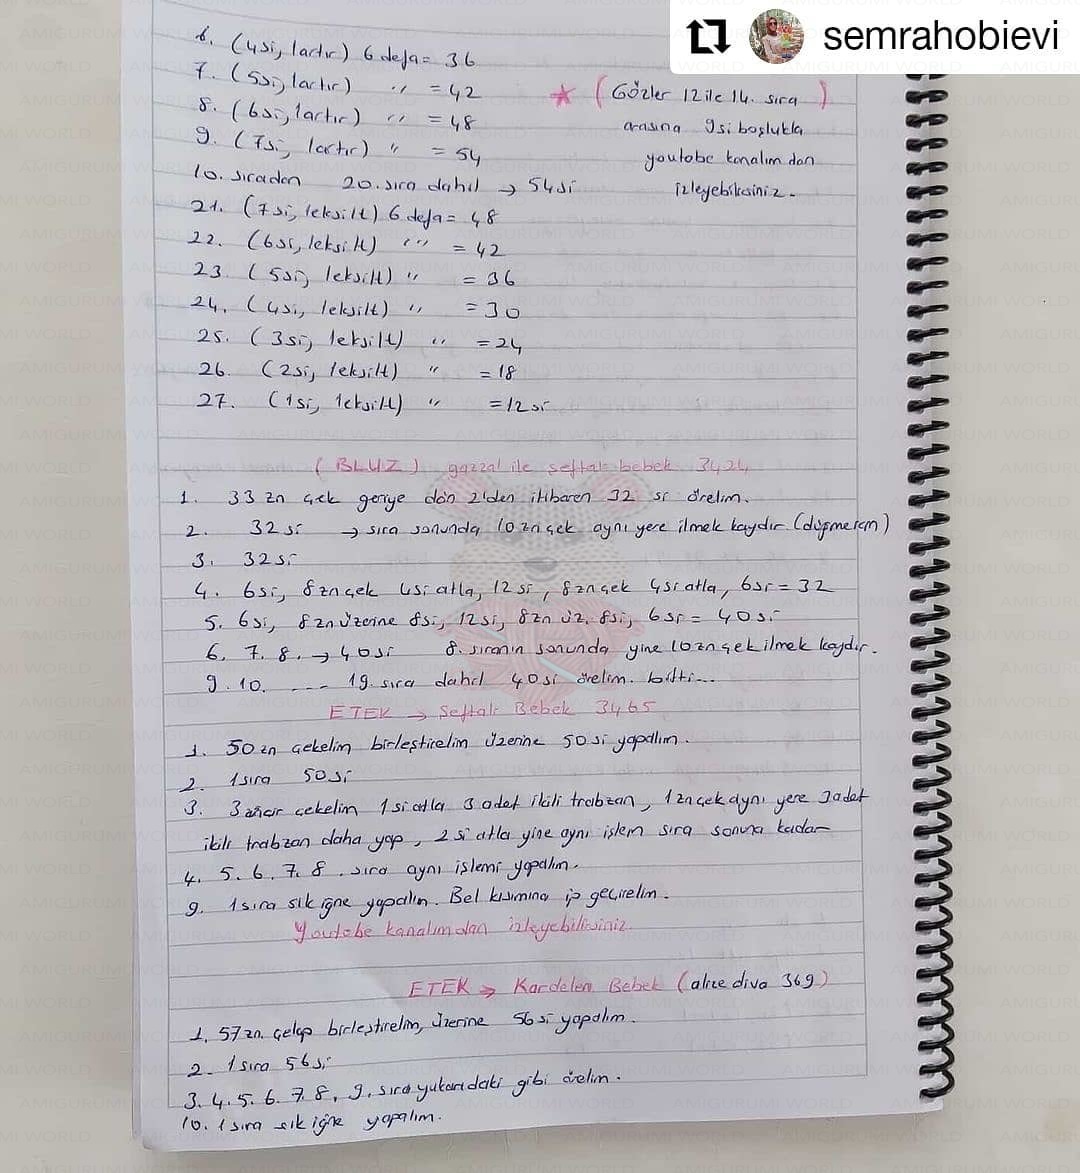 semrahobievi
6. (4si, 1artır) 6 defa = 36
7. (5si, 1artır) " = 42
8. (6si, 1artır) " = 48
9. (7si, 1artır) " = 54
10. sıradan 20. sıra dahil → 54si
21. (7si, 1eksilt) 6 defa = 48
22. (6si, 1eksilt) " = 42
23. (5si, 1eksilt) " = 36
24. (4si, 1eksilt) " = 30
25. (3si, 1eksilt) " = 24
26. (2si, 1eksilt) " = 18
27. (1si, 1eksilt) " = 12si
* (Gözler 12 ile 14. sıra)
arasına 9si boşlukla
youtobe kanalımdan
izleyebilirsiniz.
(BLUZ) gazzal ile şeftali bebek 3424
1. 33 zn çek geriye dön 2'den itibaren 32 si örelim.
2. 32si → sıra sonunda 10 zn çek aynı yere ilmek kaydır (düğme için)
3. 32si
4. 6si, 8zn çek 4si atla, 12si, 8zn çek 4si atla, 6si = 32
5. 6si, 8zn üzerine 8si, 12si, 8zn üz. 8si, 6si = 40si
6. 7. 8. → 40si 8. sıranın sonunda yine 10zn çek ilmek kaydır.
9. 10. --- 19. sıra dahil 40si örelim. bitti...
ETEK → Şeftali Bebek 3465
1. 50 zn çekelim birleştirelim üzerine 50si yapalım.
2. 1sıra 50si
3. 3 zincir çekelim 1si atla 3 adet ikili trabzan, 1zn çek aynı yere 3adet
ikili trabzan daha yap, 2si atla yine aynı işlem sıra sonuna kadar
4. 5. 6. 7. 8. sıra aynı işlemi yapalım.
9. 1sıra sık iğne yapalım. Bel kısmına ip geçirelim.
Youtobe kanalımdan izleyebilirsiniz.
ETEK → Kardelen Bebek (alize diva 369)
1. 57 zn. çekip birleştirelim, üzerine 56 si yapalım.
2. 1sıra 56si
3. 4. 5. 6. 7. 8. 9. sıra yukarıdaki gibi örelim.
10. 1sıra sık iğne yapalım.
AMIGURUMI WORLD